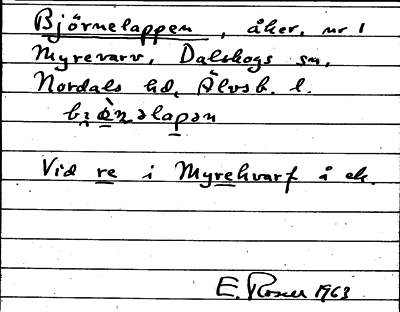 Björnelappen, åker, nr 1
Myrevarv, Dalskogs sn,
Nordals hd, Älvsb. l.
Vid re i Myrekvarf å ek.
E. Rosen 1963